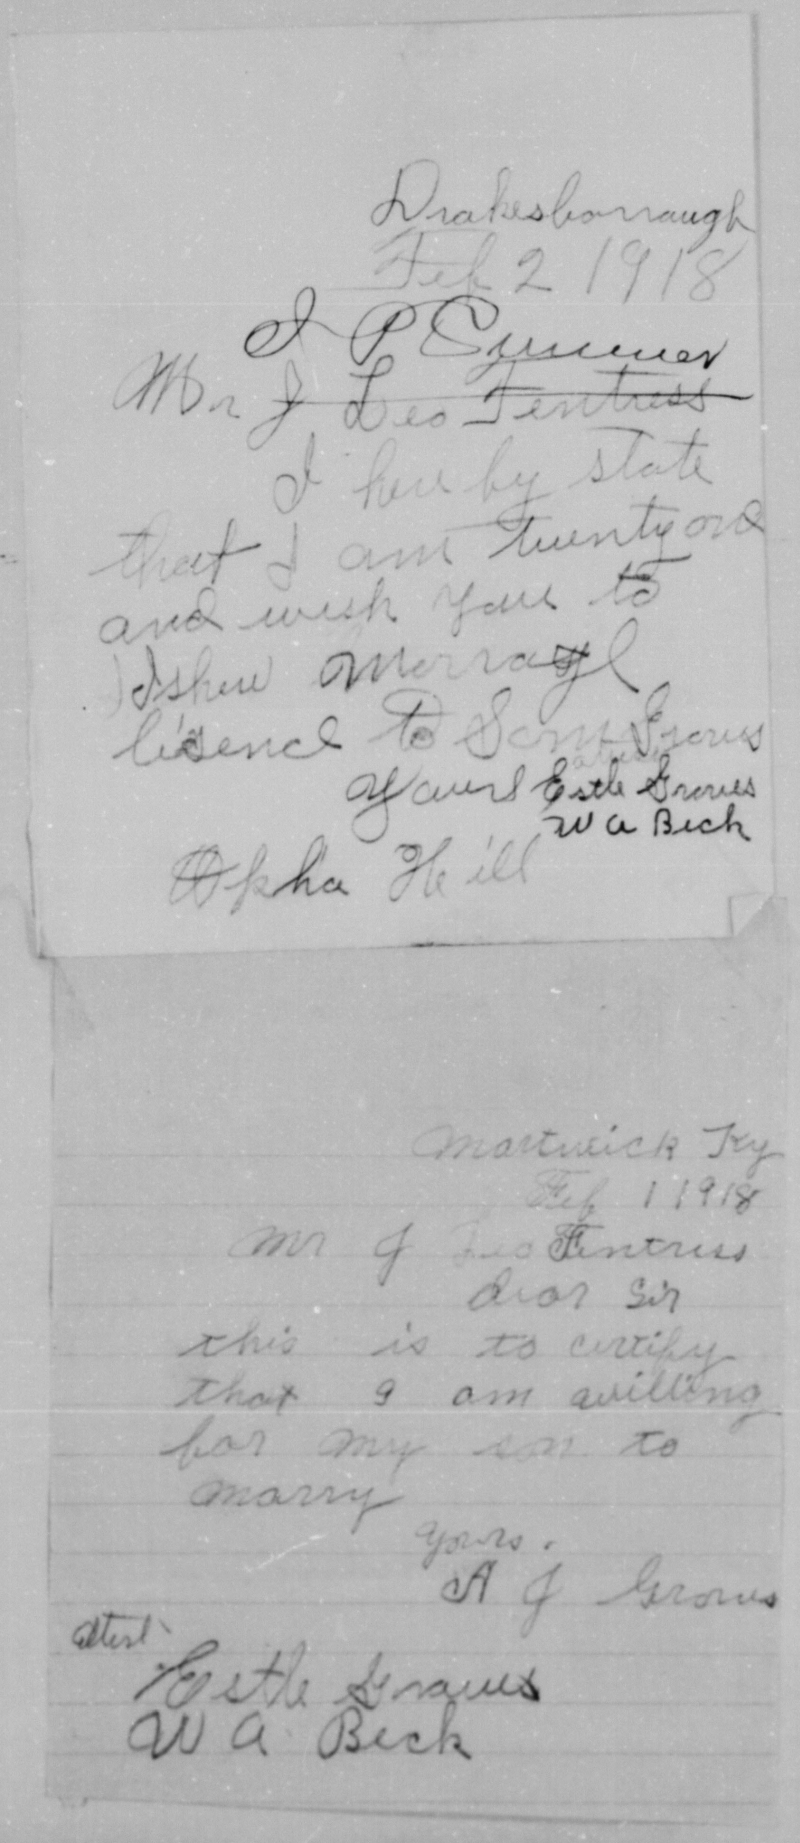 Drakesborraugh
Feb 2 1918
J P Summer
Mr J Leo Fentress
I here by state
that I am twenty one
and wish you to
Ishew Morragl
lisence to Sam Groves
attest
Yours Estle Groves
W A Beck
Opha Hill
Martwick Ky
Feb 1 1918
Mr J Leo Fentress
dear Sir
this is to certify
that I am willing
for my son to
marry
yours.
A J Groves
attest
Estle Graves
W A Beck